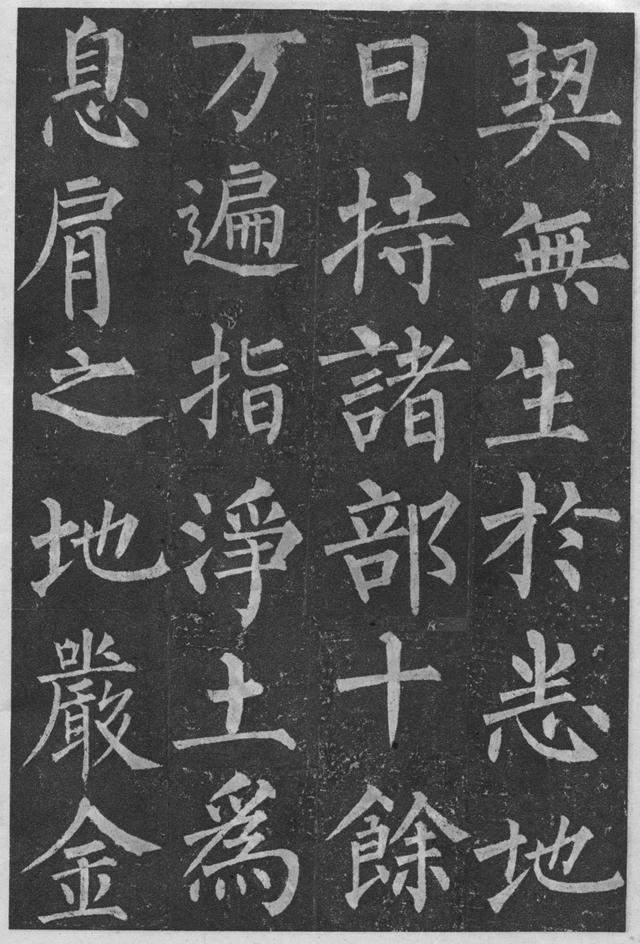 契無生於悉地
日持諸部十餘
万遍指淨土為
息肩之地嚴金